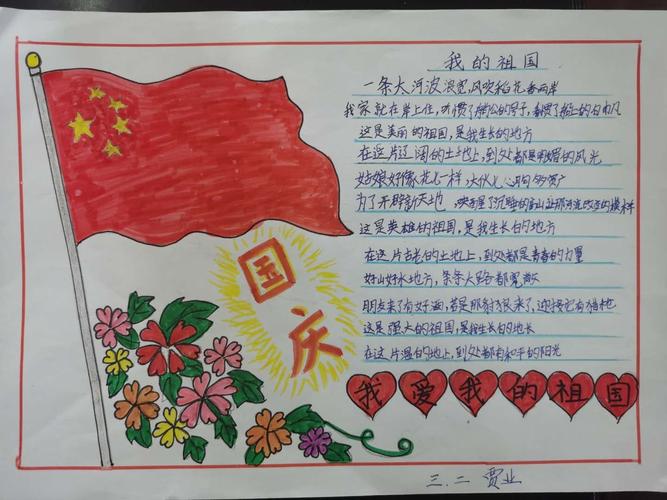 我的祖国
一条大河波浪宽,风吹稻花香两岸
我家就在岸上住,听惯了艄公的号子,看惯了船上的白帆
这是美丽的祖国,是我生长的地方
在这片辽阔的土地上,到处都是明媚的风光
姑娘好像花儿一样,小伙儿心胸多宽广
为了开辟新天地
这是英雄的祖国,是我生长的地方
在这片古老的土地上,到处都是青春的力量
好山好水地方,条条大路都宽敞
朋友来了有好酒,若是那豺狼来了,迎接它有猎枪
这是强大的祖国,是我生长的地
在这片温的地上,到处都有和平的阳光
国庆
我爱我的祖国
三.二 贾业